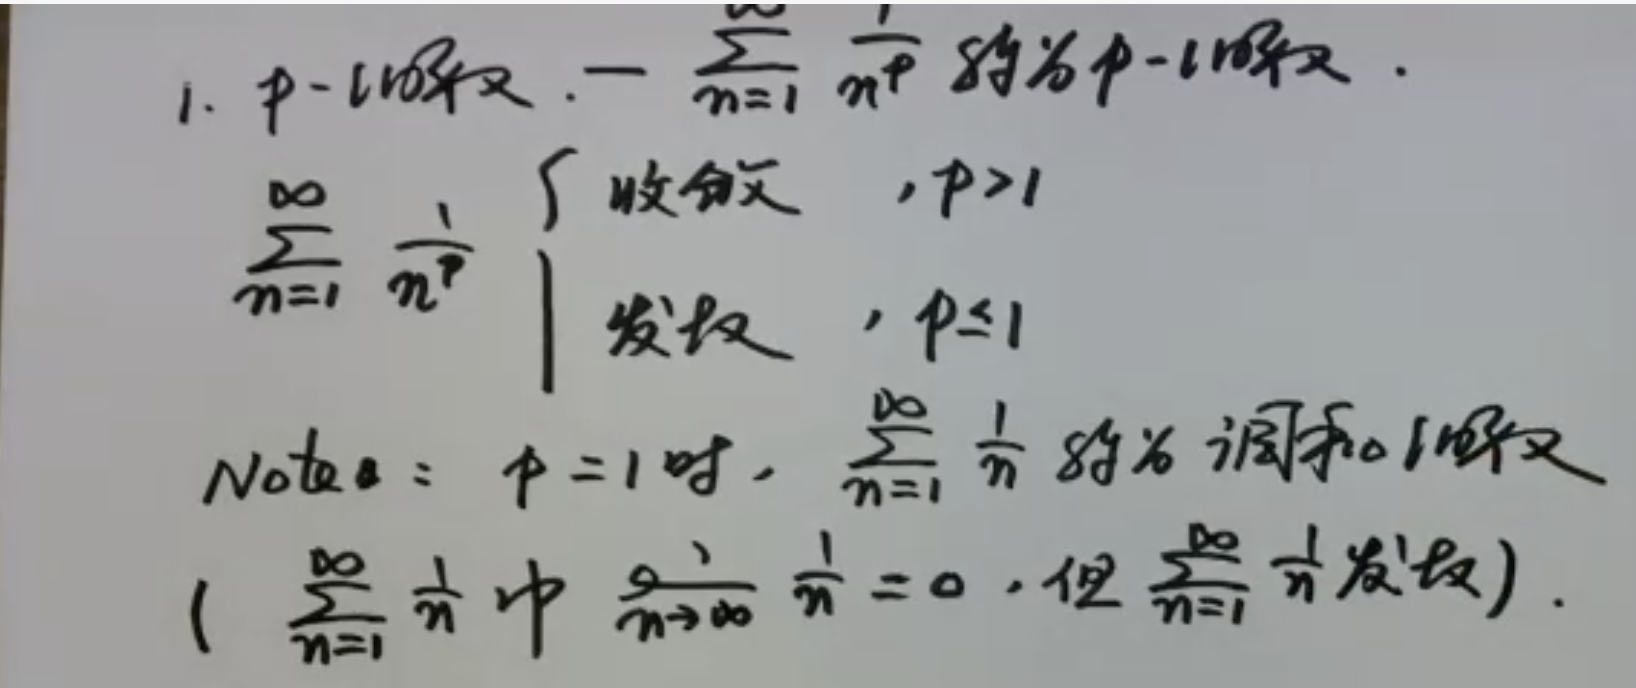 1. p-级数. — $\sum_{n=1}^{\infty} \frac{1}{n^p}$ 称为p-级数.
$\sum_{n=1}^{\infty} \frac{1}{n^p}$ { 收敛 , p>1
发散 , p≤1
Notes: p=1时, $\sum_{n=1}^{\infty} \frac{1}{n}$ 称为调和级数
( $\sum_{n=1}^{\infty} \frac{1}{n}$ 中 $\lim_{n\to\infty} \frac{1}{n}=0$, 但 $\sum_{n=1}^{\infty} \frac{1}{n}$ 发散).